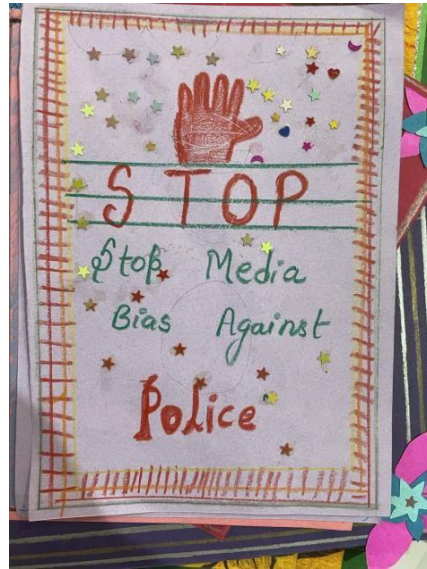 STOP
Stop Media
Bias Against
Police